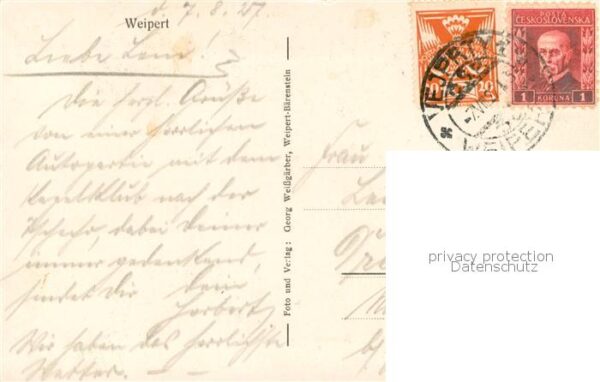 d. 7. 8. 27.
Weipert
Liebe Leni!
Die herzl. Grüße
von einer herrlichen
Autopartie mit dem
Kegelklub nach der
dabei Deiner
immer gedenkend,
sendet Dir Dein
Herbert
Wir haben das herrlichste
Wetter.
Foto und Verlag: Georg Weißgärber, Weipert-Bärenstein
Frau
POŠTA
ČESKOSLOVENSKA
1 KORUNA 1
20
VEJPRTY
WEIPERT
privacy protection
Datenschutz